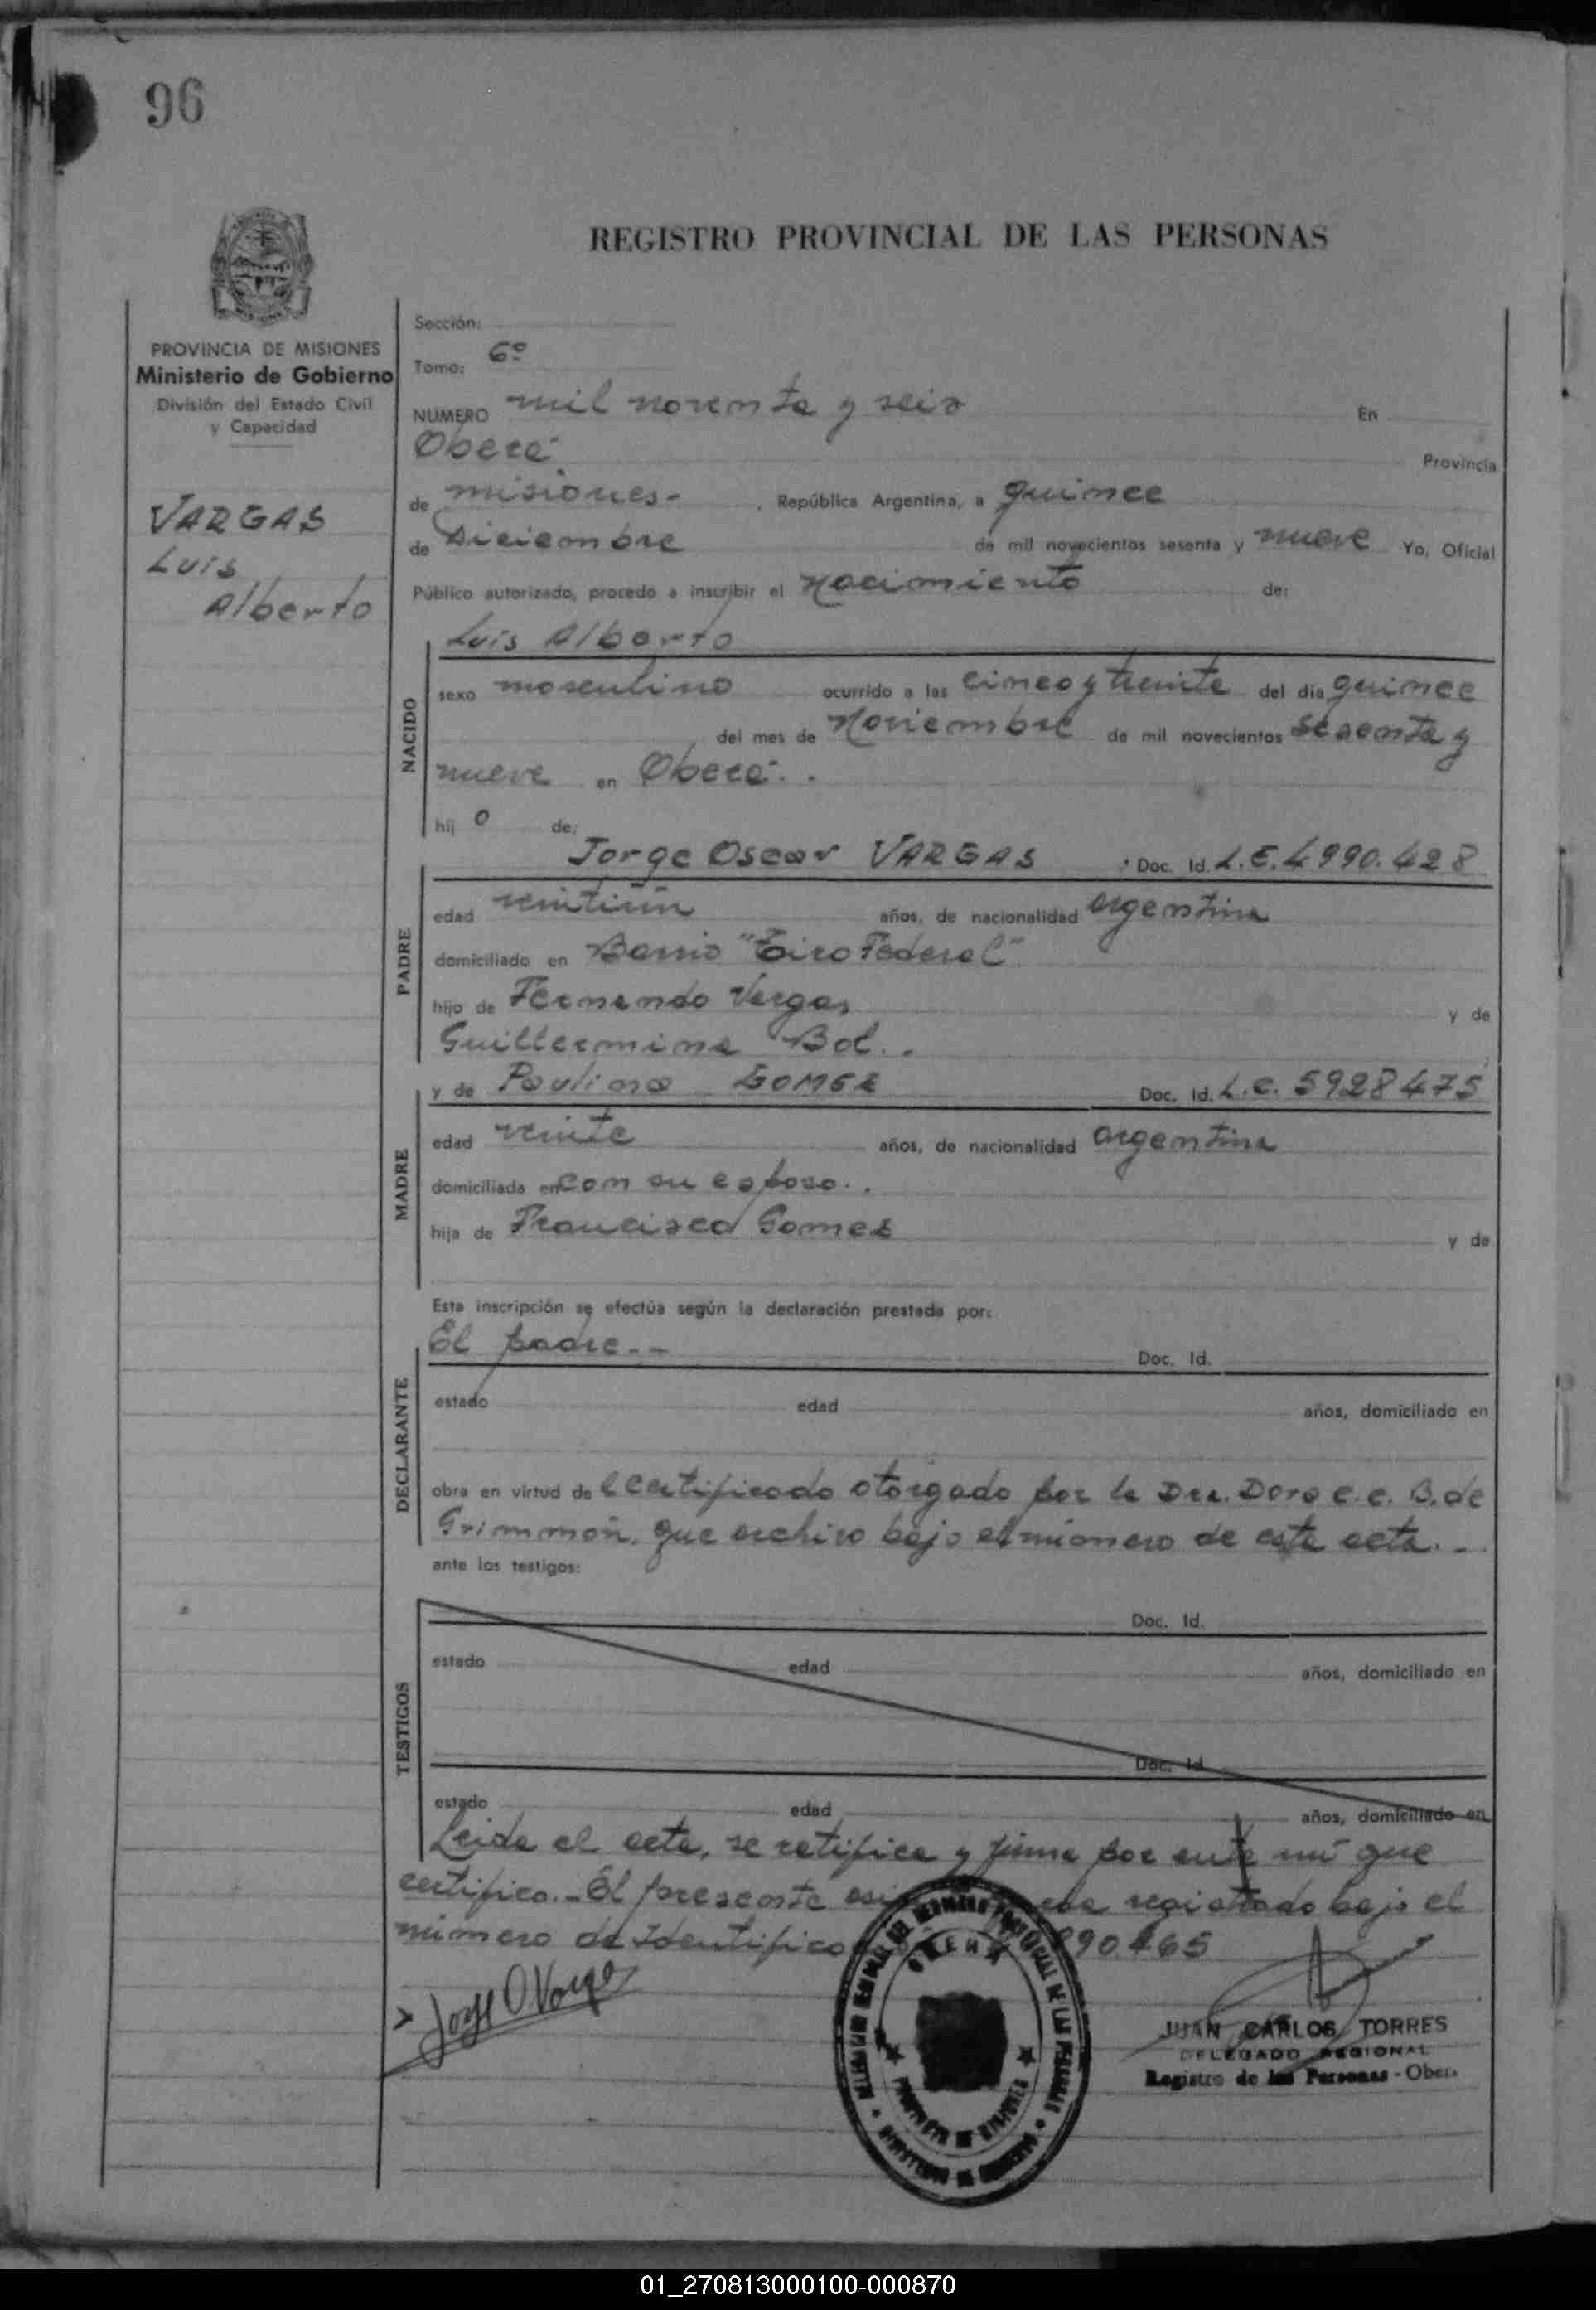 96
REGISTRO PROVINCIAL DE LAS PERSONAS
PROVINCIA DE MISIONES
Ministerio de Gobierno
División del Estado Civil
y Capacidad
VARGAS
Luis
Alberto
Sección:
Tomo: 6º
NUMERO mil noventa y seis En
Oberá. Provincia
de misiones.- , República Argentina, a quince
de Diciembre de mil novecientos sesenta y nueve Yo, Oficial
Público autorizado, procedo a inscribir el nacimiento de:
Luis Alberto
NACIDO
sexo masculino ocurrido a las cinco y treinta del día quince
del mes de Noviembre de mil novecientos sesenta y
nueve en Oberá. .
hij o de:
Jorge Oscar VARGAS Doc. Id. L.E. 4990.428
PADRE
edad veintiún años, de nacionalidad argentina
domiciliado en Barrio "Tiro Federal"
hijo de Fernando Vargas y de
Guillermina Bol. .
y de Paulina GOMEZ Doc. Id. L.C. 5928475
MADRE
edad veinte años, de nacionalidad argentina
domiciliada en con su esposo. .
hija de Francisca Gomez y de
Esta inscripción se efectúa según la declaración prestada por:
El padre.-- Doc. Id.
DECLARANTE
estado edad años, domiciliado en
obra en virtud de l certificado otorgado por la Dra. Dora C.C. B. de
Grimmon, que archivo bajo el número de este acta. -
ante los testigos:
Doc. Id.
TESTIGOS
estado edad años, domiciliado en
Doc. Id.
estado edad años, domiciliado en
Leida el acta, se ratifica y firma por ante mí que
certifico.- El presente registrado bajo el
número de Identifico 90.465
Jorge O. Vargas
OBERA
PROVINCIA DE MISIONES
MINISTERIO DE GOBIERNO
JUAN CARLOS TORRES
DELEGADO REGIONAL
Registro de las Personas - Oberá
01_270813000100-000870